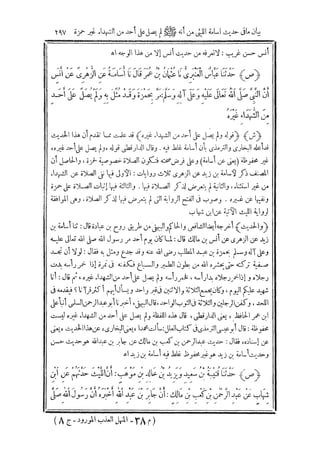 بيان مافى حديث أسامة الليثى من أنه ﷺ لم يصل على أحد من الشهداء غير حمزة ٢٩٧
أنس حسن غريب : لانعرفه من حديث أنس إلا من هذا الوجه اه
﴿ص﴾ حَدَّثَنَا عَبَّاسٌ الْعَنْبَرِىُّ نَا عُثْمَانُ بْنُ عُمَرَ قَالَ نَا أُسَامَةُ عَنِ الزُّهْرِىِّ عَنْ أَنَسٍ
أَنَّ النَّبِىَّ صَلَّى اللهُ تَعَالَى عَلَيْهِ وَعَلَى آلِهِ وَسَلَّمَ مَرَّ بِحَمْزَةَ وَقَدْ مُثِّلَ بِهِ وَلَمْ يُصَلِّ عَلَى أَحَدٍ
مِنَ الشُّهَدَاءِ غَيْرِهُ
﴿ش﴾ ﴿قوله ولم يصل على أحد من الشهداء غيره﴾ قد علمت مما تقدم أن هذا الحديث
قد أعله البخارى والترمذى بأن أسامة غلط فيه. وقال الدارقطنى قوله. ولم يصل على أحد غيره.
غير محفوظة (يعنى عن أسامة) وعلى فرض صحته فتكون الصلاة خصوصية لحمزة . والحاصل أن
المصنف ذكر لأسامة بن زيد عن الزهرى ثلاث روايات : الأولى فيها نفى الصلاة عن الشهداء
من غير استثناء. والثانية لم يتعرض لذكر الصلاة فيها . والثالثة فيها إثبات الصلاة على حمزة
ونفيها عن غيره . وصوب فى الفتح الرواية التى لم يتعرض فيها لذكر الصلاة. وهى الموافقة
لرواية الليث الآتية عن ابن شهاب
﴿والحديث﴾ أخرجه أيضا الشافعى والحاكم والبيهقى من طريق روح بن عبادة قال : ثنا أسامة بن
زيد عن الزهرى عن أنس بن مالك قال : لما كان يوم أحد مر رسول الله صلى الله تعالى عليه
وعلى آله وسلم بحمزة بن عبد المطلب رضى الله عنه وقد جدع ومثل به فقال : لولا أن تجد
صفية تركته حتى يحشره الله من بطون الطير والسباع فكفنه فى نمرة إذا خمر رأسه بدت
رجلاه وإذا خمر رجلاه بدا رأسه. فخمر رأسه ولم يصل على أحد من الشهداء غيره ثم قال : أنا
شهيد عليكم اليوم. وكان يجمع الثلاثة والاثنين فى قبر واحد ويسأل أيهم أكثر قرآنا ؟ فيقدمه فى
اللحد. وكفن الرجلين والثلاثة فى الثوب الواحد. قال البيهقى: أخبرنا أبو عبد الرحمن السلمى أنبأ على
ابن عمر الحافظ « يعنى الدارقطنى» قال هذه اللفظة ولم يصل على أحد من الشهداء غيره ليست
محفوظة : قال أبو عيسى الترمذى فى كتاب العلل: سألت محمدا «يعنى البخارى» عن هذا الحديث. يعنى
عن إسناده. فقال : حديث عبد الرحمن بن كعب بن مالك عن جابر بن عبد الله هو حديث حسن
وحديث أسامة بن زيد هو غير محفوظ غلط فيه أسامة بن زيد اه
﴿ص﴾ حَدَّثَنَا قُتَيْبَةُ بْنُ سَعِيدٍ وَيَزِيدُ بْنُ خَالِدِ بْنِ مَوْهَبٍ: أَنَّ اللَّيْثَ حَدَّثَهُمْ عَنِ ابْنِ
شِهَابٍ عَنْ عَبْدِ الرَّحْمَنِ بْنِ كَعْبِ بْنِ مَالِكٍ: أَنَّ جَابِرَ بْنَ عَبْدِ اللهِ أَخْبَرَهُ أَنَّ رَسُولَ اللهِ صَلَّى
(م ٣٨ - المنهل العذب المورود - ج ٨)